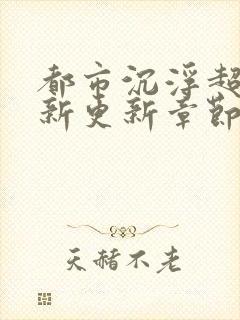 都市沉浮超
新更新章節
天赭不老